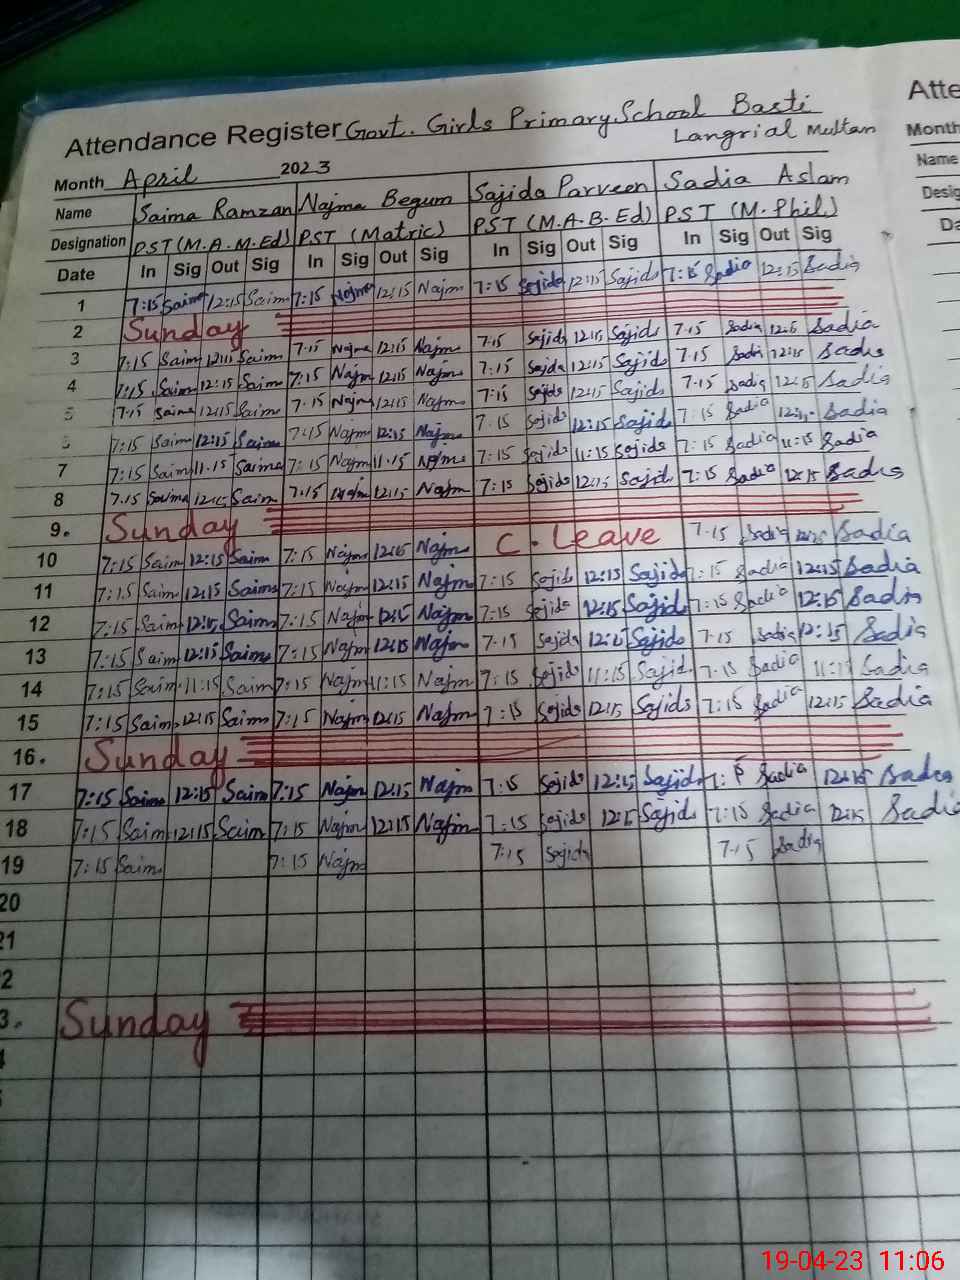 Attendance Register Govt. Girls Primary School Basti
Langrial Multan
Month April 2023
Name Saima Ramzan Najma Begum Sajida Parveen Sadia Aslam
Designation PST (M.A-M.Ed) PST (Matric) PST (M.A-B-Ed) PST (M.Phil)
Date In Sig Out Sig In Sig Out Sig In Sig Out Sig In Sig Out Sig
1 7:15 Saima 12:15 Saim 7:15 Najma 12:15 Najm 7:15 Sajida 12:15 Sajids 7:15 Sadia 12:15 Sadia
2 Sunday
3 7:15 Saim 12:15 Saim 7:15 Najma 12:15 Najm 7:15 Sajids 12:15 Sajids 7:15 Sadia 12:15 Sadia
4 7:15 Saim 12:15 Saim 7:15 Najm 12:15 Najm 7:15 Sajda 12:15 Sajids 7:15 Sadi 12:15 Sadia
5 7:15 Saima 12:15 Saim 7:15 Najm 12:15 Najm 7:15 Sajids 12:15 Sajids 7:15 Sadia 12:15 Sadia
6 7:15 Saim 12:15 Saim 7:15 Najm 12:15 Najm 7:15 Sajids 12:15 Sajids 7:15 Sadia Sadia
7 7:15 Saim 11:15 Saima 7:15 Najm 11:15 Najma 7:15 Sajids 11:15 Sajids 7:15 Sadia 11:15 Sadia
8 7:15 Saima Saim 7:15 Najm 12:15 Najm 7:15 Sajids 12:15 Sajid 7:15 Sadia 12:15 Sadia
9. Sunday
10 7:15 Saim 12:15 Saim 7:15 Najm 12:15 Najm C. Leave 7:15 Sadia 12:15 Sadia
11 7:15 Saim 12:15 Saima 7:15 Najm 12:15 Najm 7:15 Sajids 12:15 Sajids 7:15 Sadia 12:15 Sadia
12 7:15 Saim 12:15 Saima 7:15 Najm Najm 7:15 Sajids 12:15 Sajids 7:15 Sadia 12:15 Sadia
13 7:15 Saim 12:15 Saima 7:15 Najm 12:15 Najm 7:15 Sajida 12:15 Sajids 7:15 Sadia 12:15 Sadia
14 7:15 Saim 11:15 Saim 7:15 Najm 11:15 Najm 7:15 Sajids 11:15 Sajid 7:15 Sadia 11:15 Sadia
15 7:15 Saim 12:15 Saim 7:15 Najm 12:15 Najm 7:15 Sajids 12:15 Sajids 7:15 Sadia 12:15 Sadia
16. Sunday
17 7:15 Saima 12:15 Saim 7:15 Najm 12:15 Najm 7:15 Sajids 12:15 Sajids Sadia 12:15 Sadia
18 7:15 Saim 12:15 Saim 7:15 Najm 12:15 Najm 7:15 Sajids 12:15 Sajids 7:15 Sadia 12:15 Sadia
19 7:15 Saim 7:15 Najm 7:15 Sajida 7:15 Sadia
20
21
2
3. Sunday
Atte
Month
Name
Desig
Da
19-04-23 11:06